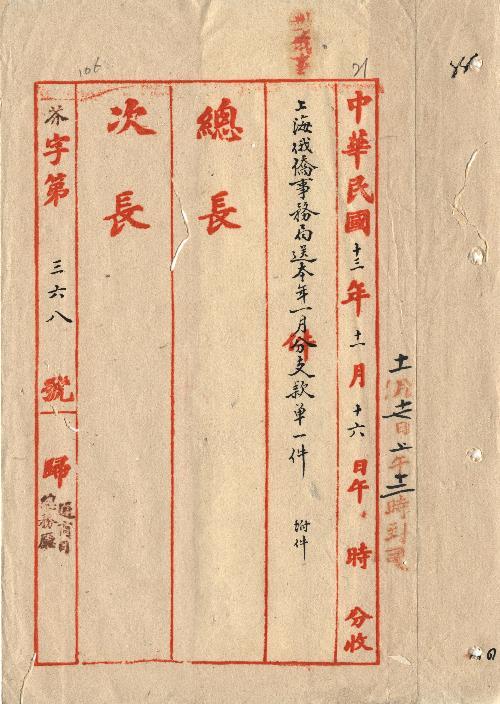 十一月十七日上午十二時到司
中華民國十三年十一月十六日午 時 分收
上海俄僑事務局送本年一月分支款单一件 附件
件
總長
次長
芥字第三六八號歸
通商司
總務廳
106
21